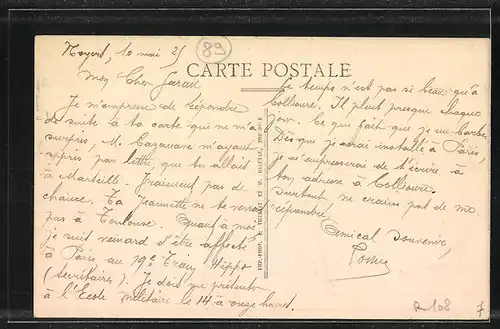 10 mai 25
89
CARTE POSTALE
Mon Cher
Je m'empresse de répondre
de suite à ta carte qui ne m'a
surpris, M. Cazanave m'ayant
appris par lettre que tu allais
à Marseille. Vraiment pas de
chance. Ta Jeannette ne te verra
pas à Toulouse. Quant à moi
je suis veinard d'être affecté
à Paris au 19e Train Hippo
(secrétaires). Je dois me présenter
à l'Ecole Militaire le 14 à onze heures.
Le temps n'est pas si beau qu'à
Collioure. Il pleut presque chaque
jour. Ce qui fait que je me barbe.
Dès que je serai installé à Paris,
je m'empresserai de t'écrire à
ton adresse à Collioure.
Surtout ne crains pas de me
répondre.
Amical Souvenir,
108
7